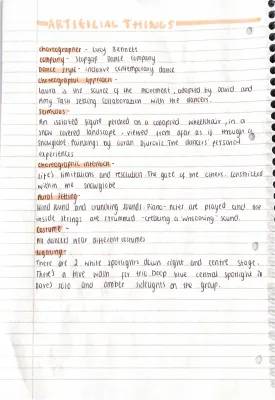 ARTIFICIAL THINGS
choreographer - Lucy Bennett
company - Stopgap Dance company
Dance style - inclusive contemporary dance
choreographic approach -
Laura is the source of the movement, adapted by David and
Amy. Task setting collaboration with the dancers.
Stimulus -
An isolated figure perched on a collapsed wheelchair, in a
snow covered landscape, viewed from afar as if through a
snowglobe. Paintings by Goran Djurovic. The dancers' personal
experiences
choreographic intention -
Life's limitations and resolution. The gaze of the others. Constricted
within the snowglobe
Aural setting -
Wind sound and crunching sounds. Piano - notes are played and the
inside strings are strummed - creating a whooshing sound.
Costume -
All dancers wear different costumes
Lighting -
There are 2 white spotlights down right and centre stage.
There's a blue wash for trio. Deep blue central spotlight in
Dave's solo and amber sidelights on the group.